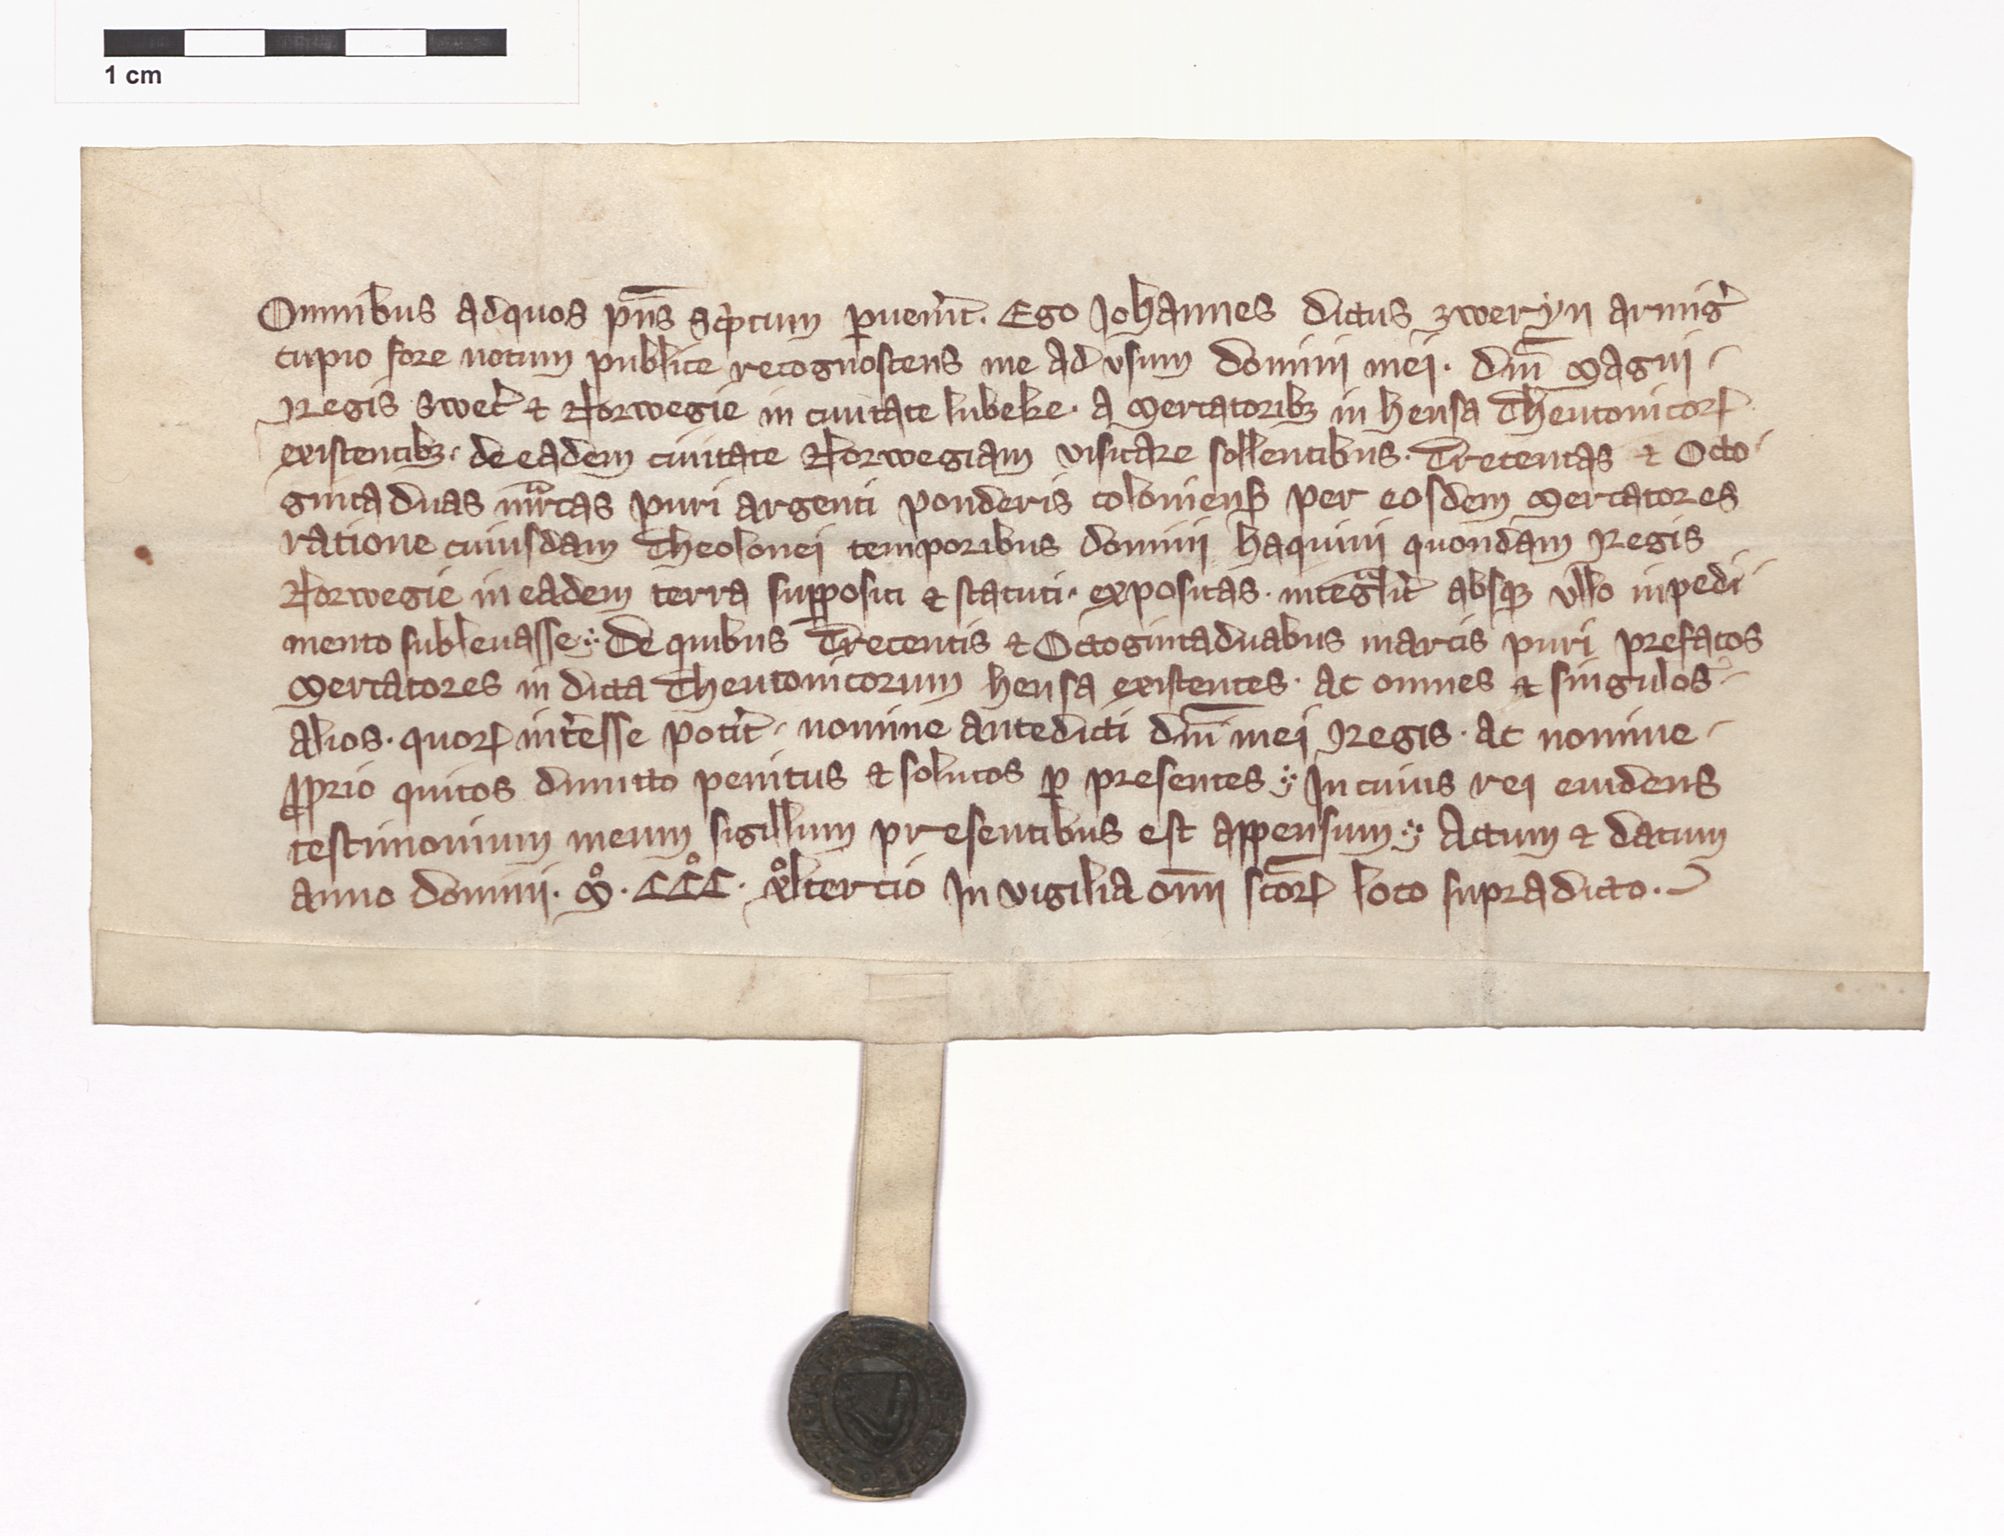 1 cm
Omnibus ad quos pn̄s scptum puen̕it. Ego Johannes dictus zweryn armig̕
cupio fore notum publice recognoscens me ad vsum domini mei. dn̄i Magni -
Regis Swec̕ & Norwegie in ciuitate lubeke. a Mercatoribꝫ in hensa Theutonicoꝝ
existentibꝫ. de eadem ciuitate Norwegiam visitare sollentibus. Trecentas & Octo-
gintaduas mͣrcas puri argenti ponderis coloniens̕ per eosdem Mercatores
ratione cuiusdam Theolonei temporibus domini haquini quondam Regis
Norwegie in eadem terra suppositi & statuti. expositas. integͣlit̕ absqꝫ vllo inpedi-
mento subleuasse. De quibus Trecentis & Octogintaduabus marcis puri prefatos
Mercatores in dicta Theutonicorum hensa existentes. ac omnes & singulos -
alios. quoꝝ int̕esse pot̕it. nomine antedicti dn̄i mei Regis. ac nomine -
ꝓprio quitos dimitto penitus & solutos ꝑ presentes. In cuius rei euidens
testimonium meum sigillum presentibus est appensum. Actum & datum
anno domini. Mͦ. CCCͦ. xͦltercio In vigilia om̄i sc̄oꝝ loco supradicto.